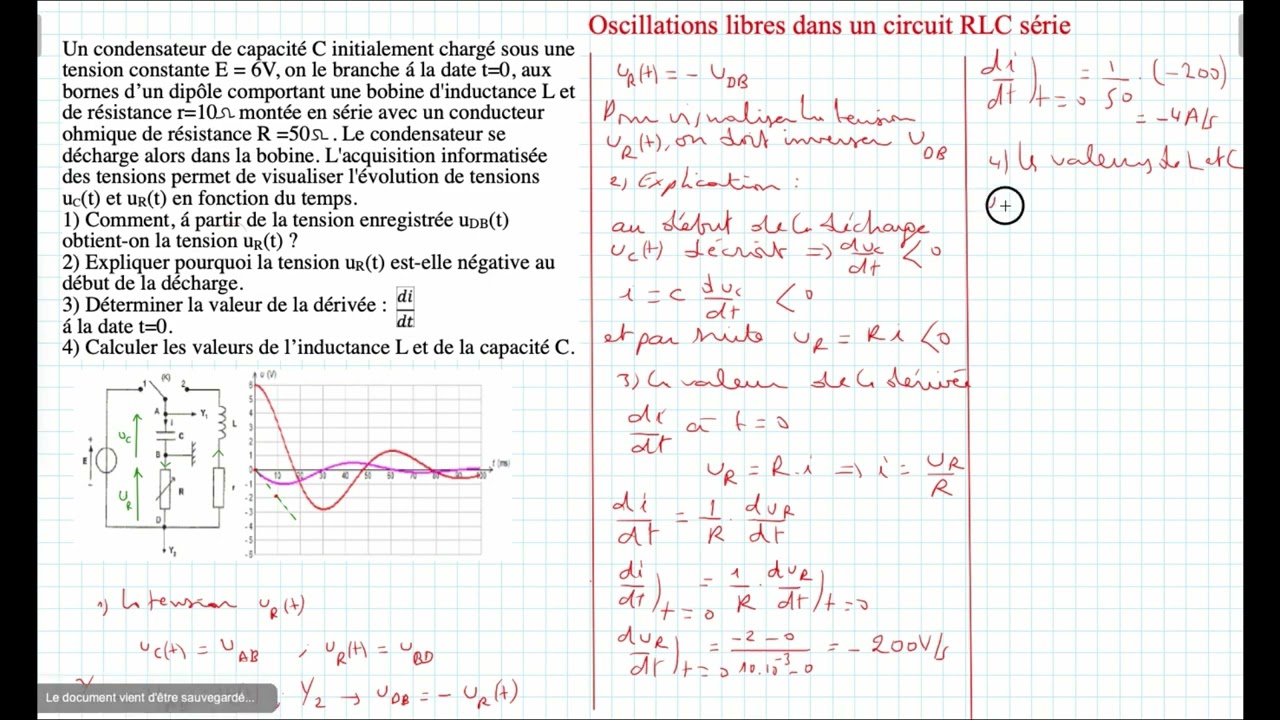 Oscillations libres dans un circuit RLC série
Un condensateur de capacité C initialement chargé sous une
tension constante E = 6V, on le branche á la date t=0, aux
bornes d’un dipôle comportant une bobine d'inductance L et
de résistance r=10Ω montée en série avec un conducteur
ohmique de résistance R =50Ω. Le condensateur se
décharge alors dans la bobine. L'acquisition informatisée
des tensions permet de visualiser l'évolution de tensions
uC(t) et uR(t) en fonction du temps.
1) Comment, á partir de la tension enregistrée uDB(t)
obtient-on la tension uR(t) ?
2) Expliquer pourquoi la tension uR(t) est-elle négative au
début de la décharge.
3) Déterminer la valeur de la dérivée : di/dt
á la date t=0.
4) Calculer les valeurs de l’inductance L et de la capacité C.
(K)
1 2
A Y1
i
uC C L
B
E
uR R r
D
Y2
u (V)
t (ms)
1) La tension uR(t)
uC(t) = UAB ; uR(t) = UBD
; Y2 → UDB = - uR(t)
Le document vient d'être sauvegardé...
uR(t) = - UDB
Pour visualiser la tension
uR(t), on doit inverser UDB
2) Explication :
au début de la décharge
uC(t) décroit => duC/dt < 0
i = C duC/dt < 0
et par suite uR = Ri < 0
3) la valeur de la dérivée
di/dt à t = 0
uR = R.i => i = uR/R
di/dt = 1/R . duR/dt
di/dt)t=0 = 1/R . duR/dt)t=0
duR/dt)t=0 = -2-0/10.10^-3-0 = - 200V/s
di/dt)t=0 = 1/50 . (-200)
= -4A/s
4) les valeurs de L et C